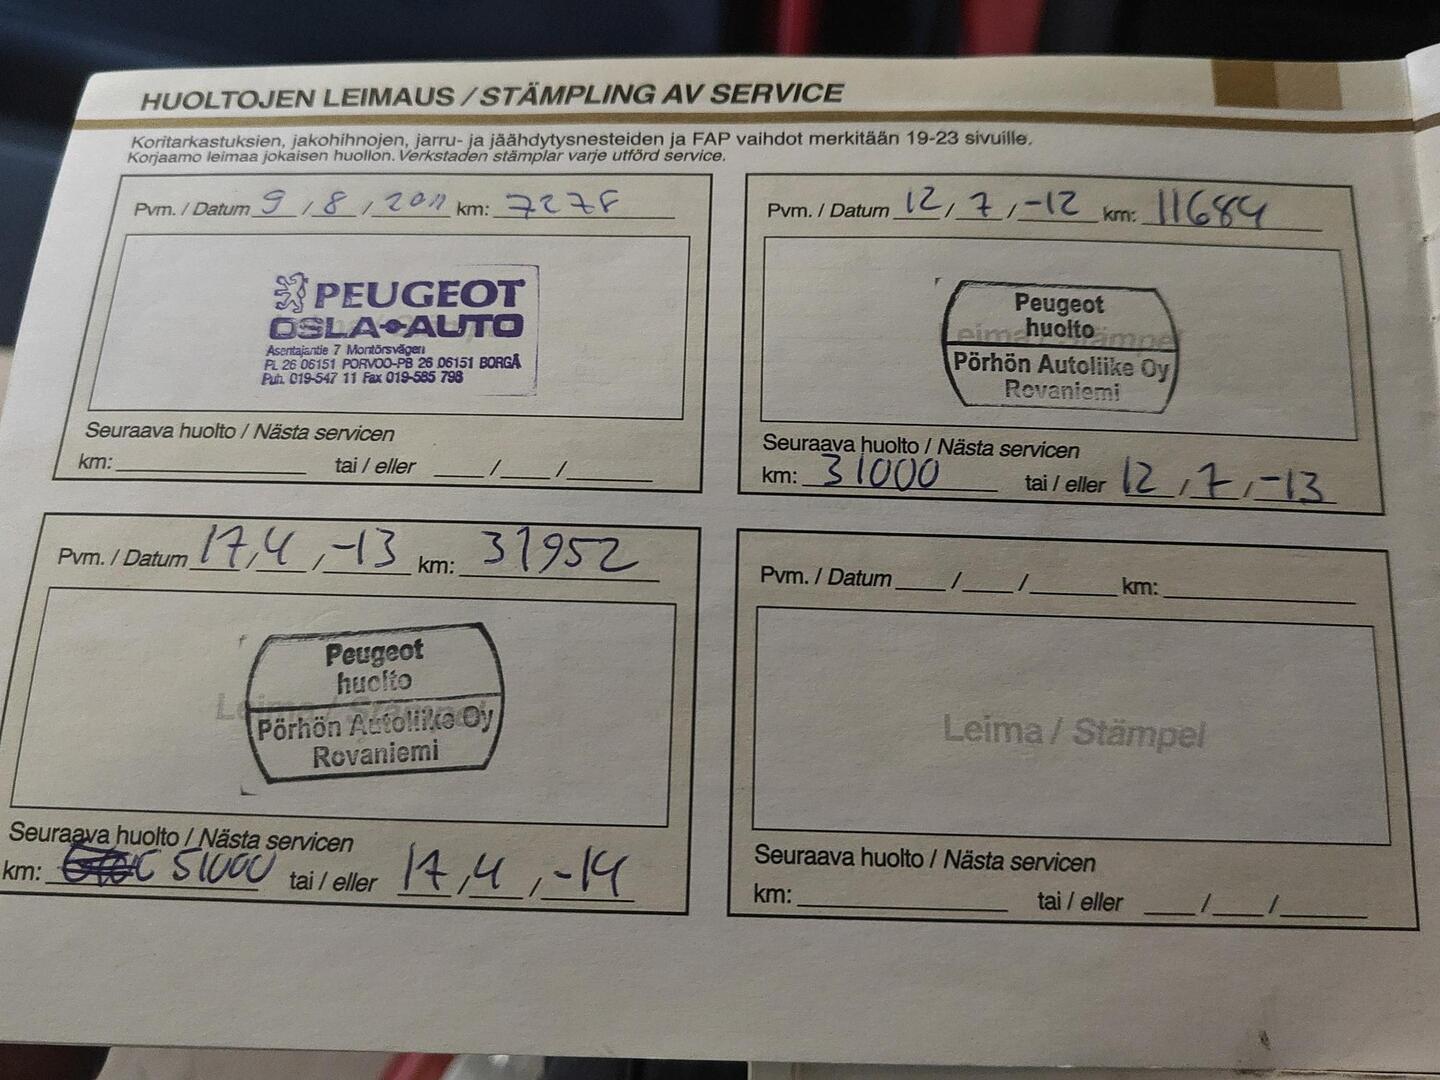 HUOLTOJEN LEIMAUS / STÄMPLING AV SERVICE
Koritarkastuksien, jakohihnojen, jarru- ja jäähdytysnesteiden ja FAP vaihdot merkitään 19-23 sivuille.
Korjaamo leimaa jokaisen huollon. Verkstaden stämplar varje utförd service.
Pvm. / Datum 9 / 8 / 2011 km: 7278
PEUGEOT
OSLA-AUTO
Asentajantie 7 Montörsvägen
PL 26 06151 PORVOO-PB 26 06151 BORGÅ
Puh. 019-547 11 Fax 019-585 798
Seuraava huolto / Nästa servicen
km: tai / eller / /
Pvm. / Datum 12 / 7 / -12 km: 11684
Leima / Stämpel
Peugeot
huolto
Pörhön Autoliike Oy
Rovaniemi
Seuraava huolto / Nästa servicen
km: 31000 tai / eller 12 / 7 / -13
Pvm. / Datum 17 / 4 / -13 km: 31952
Leima / Stämpel
Peugeot
huolto
Pörhön Autoliike Oy
Rovaniemi
Seuraava huolto / Nästa servicen
km: 51000 tai / eller 17 / 4 / -14
Pvm. / Datum / / km:
Leima / Stämpel
Seuraava huolto / Nästa servicen
km: tai / eller / /